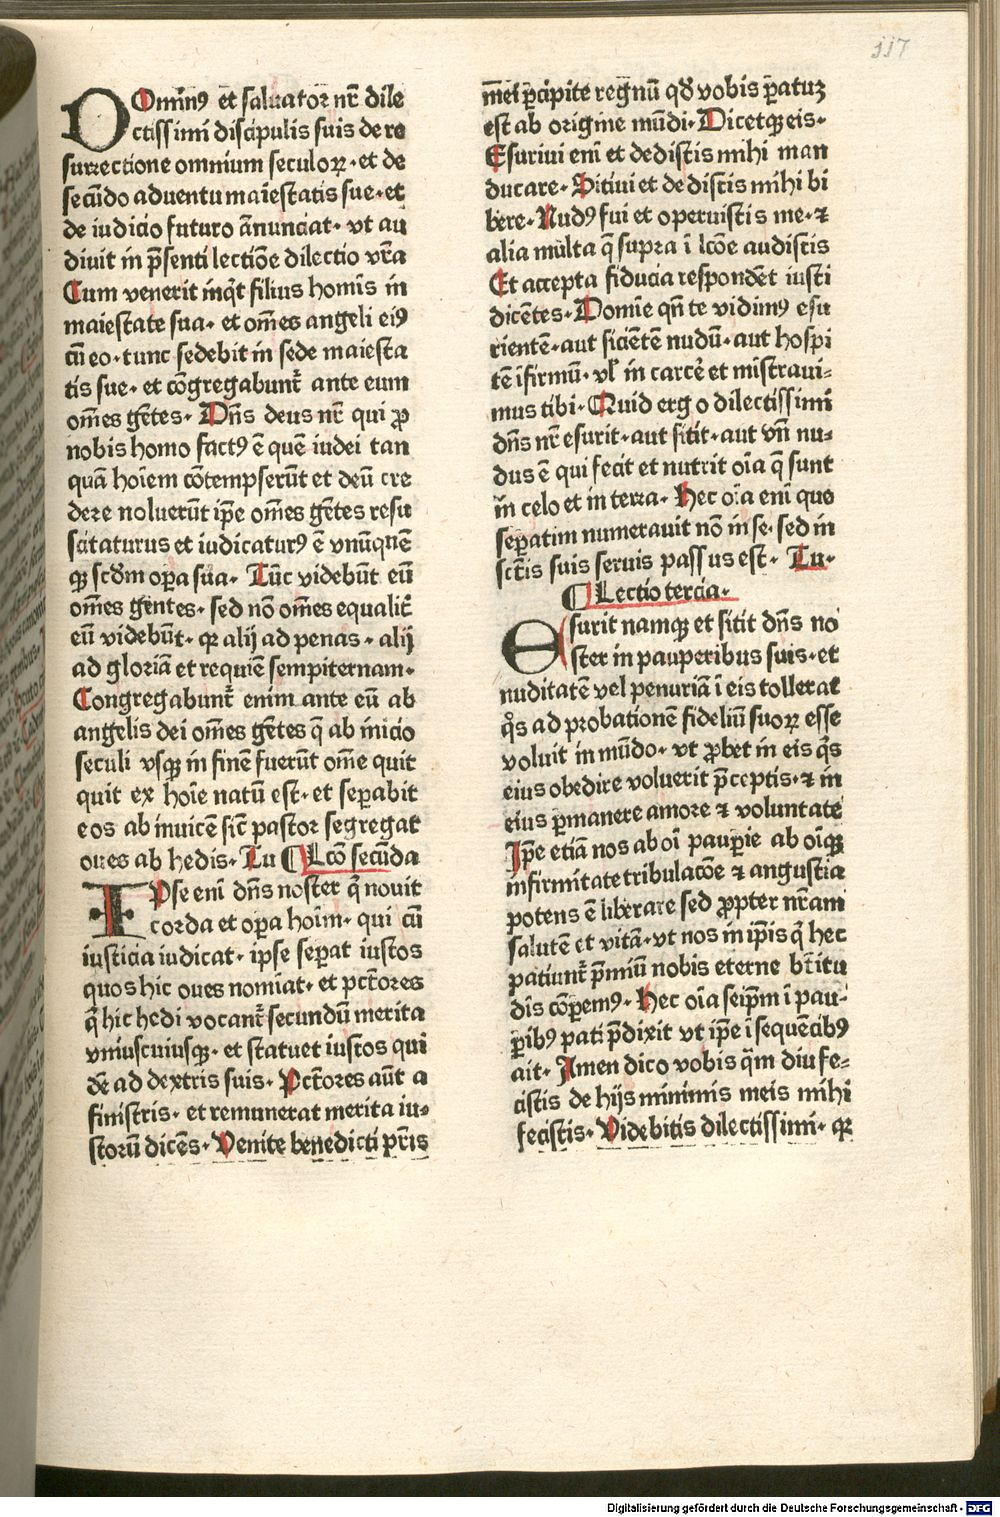 117
DOmin⁹ et saluator nr̄ dile
ctissimi discipulis suis de re
surrectione omnium seculoꝝ · et de
secūdo aduentu maiestatis sue · et
de iudicio futuro ānunciat · vt au
diuit in p̄senti lectiōe dilectio vr̄a
Cum venerit inqͥt filius homīs in
maiestate sua · et om̄es angeli ei⁹
cū eo · tunc sedebit in sede maiesta
tis sue · et cōgregabunt᷑ ante eum
om̄es gētes · Dn̄s deus nr̄ qui ꝓ
nobis homo fact⁹ ē quē iudei tan
quā hoīem cōtempserūt et deū cre
dere noluerūt ip̄e om̄es gētes resu
scitaturus et iudicatur⁹ ē vnūqnē
qꝫ scd̄m oꝑa sua · Tūc videbūt eū
om̄es gentes · sed nō om̄es equalit᷑
eū videbūt · qꝛ alij ad penas · alij
ad gloriā et requiē sempiternam ·
Congregabunt᷑ enim ante eū ab
angelis dei om̄es gētes q̄ ab inicio
seculi vsqꝫ in finē fuerūt om̄e quit
quit ex hoīe natū est · et seꝑabit
eos ab inuicē sic̄ pastor segregat
oues ab hedis · Tu ¶ Lcō secūda
IPse eni dn̄s noster qͥ nouit
corda et oꝑa hoīm · qui cū
iusticia iudicat · ipse seꝑat iustos
quos hic oues nomīat · et pctōres
qͥ hic hedi vocant᷑ secundū merita
vniuscuiusqꝫ · et statuet iustos qui
dē ad dextris suis · Pctōres aūt a
sinistris · et remunerat merita iu⸗
storū dicēs · Venite benedicti pr̄is
mei ꝑcipite regnū qd̄ vobis ꝑatuꝫ
est ab origine mūdi · Dicetqꝫ eis ·
Esuriui eni et dedistis mihi man
ducare · Sitiui et dedistis mihi bi
bere · Nud⁹ fui et operuistis me · ⁊
alia multa q̄ supra ī lcōe audistis
Et accepta fiducia respondēt iusti
dicētes · Domīe qn̄ te vidim⁹ esu
rientē · aut sicietē nudū · aut hospi
tē īfirmū · vl̓ in carcē et mīstraui⸗
mus tibi · Quid ergo dilectissimi
dn̄s nr̄ esurit · aut sitit · aut vn̄ nu⸗
dus ē qui fecit et nutrit oīa q̄ sunt
in celo et in terra · Hec oīa eni que
seꝑatim numerauit nō in se · sed in
sctīs suis seruis passus est · Tu ·
¶ Lectio tercia ·
Esurit namqꝫ et sitit dn̄s no
ster in pauperibus suis · et
nuditatē vel penuriā ī eis tollerat
qͦs ad probationē fideliū suoꝝ esse
voluit in mūdo · vt ꝓbet in eis qͥs
eius obedire voluerit p̄ceptis · ⁊ in
eius ꝑmanere amore ⁊ voluntate
Ip̄e etiā nos ab oī pauꝑie ab oīqꝫ
infirmitate tribulacōe ⁊ angustia
potens ē liberare sed ꝓpter nr̄am
salutē et vitā · vt nos in ip̄is qͥ hec
patiunt᷑ p̄miū nobis eterne btītu
dīs cōꝑem⁹ · Hec oīa seip̄m ī pau⸗
ꝑib⁹ pati p̄dixit vt ip̄e ī sequētib⁹
ait · Amen dico vobis qͣm diu fe⸗
cistis de hijs minimis meis mihi
fecistis · Videbitis dilectissimi · qꝛ
Digitalisierung gefördert durch die Deutsche Forschungsgemeinschaft - DFG